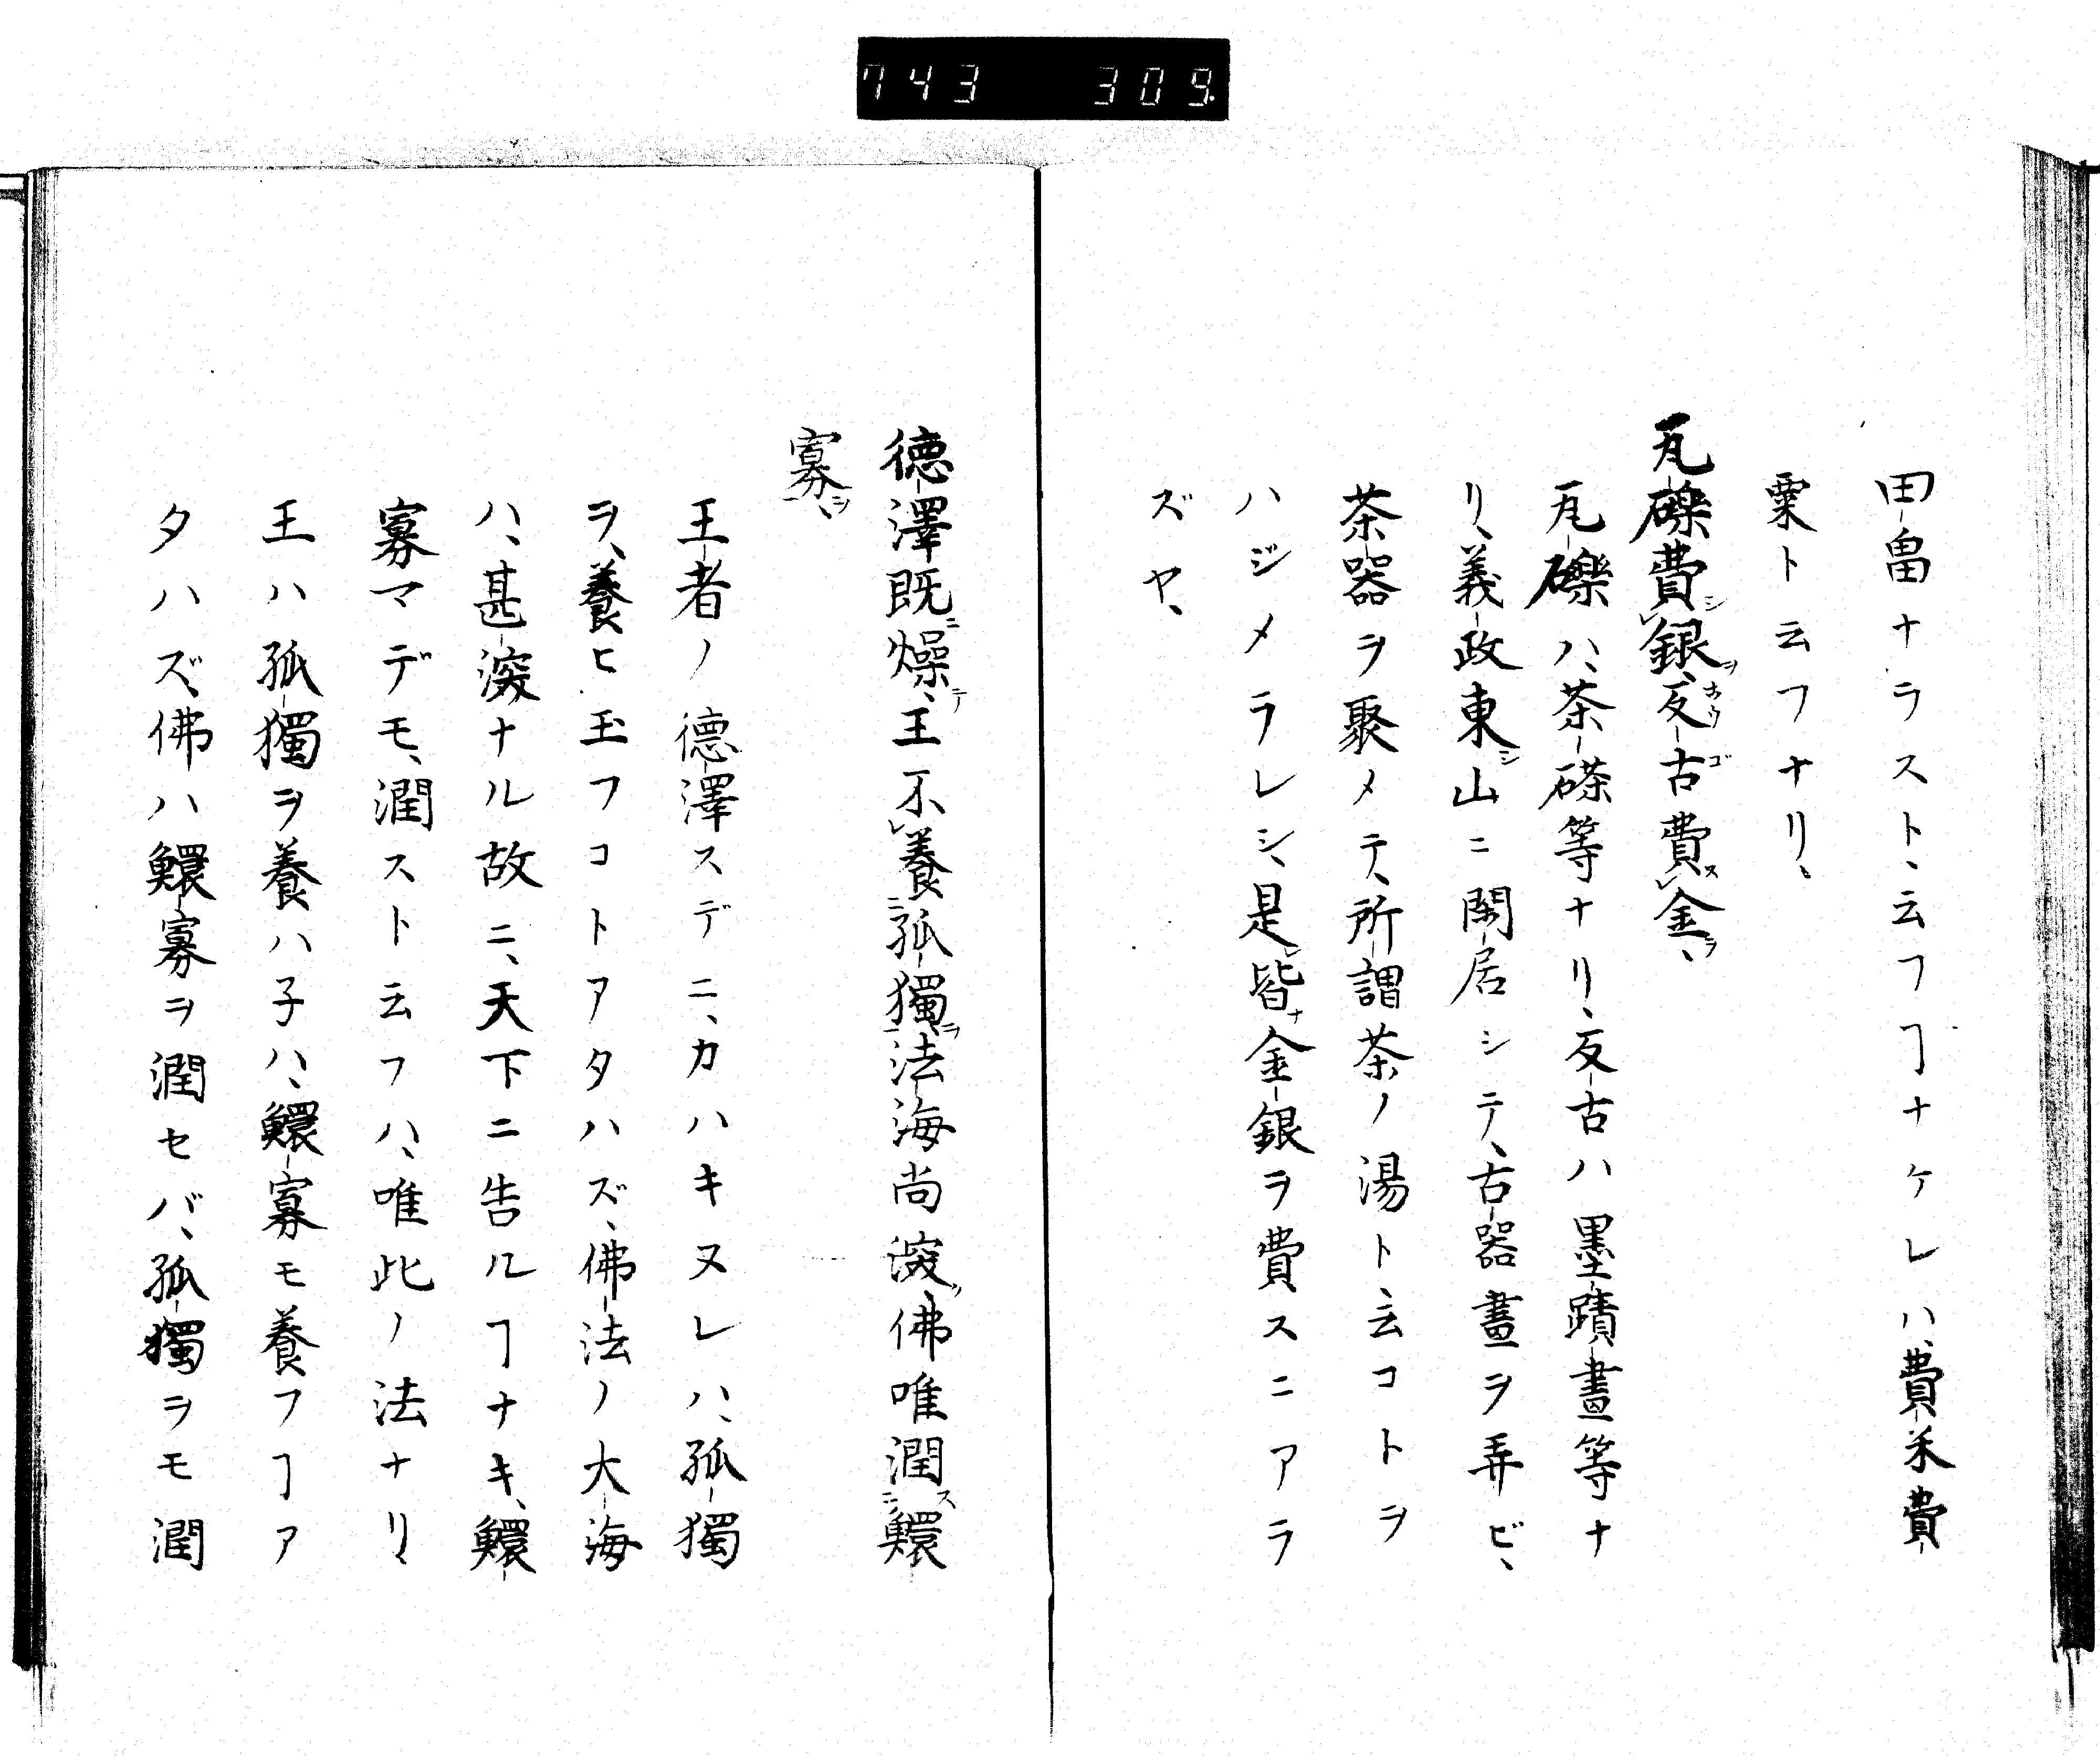 743 309
田畠ナラスト、云フヿナケレハ、費米費
粟ト云フナリ、
瓦礫費シ㆑銀ヲ、反古ホウゴ費ス㆑金ヲ、
瓦礫ハ、茶磔等ナリ、反古ハ墨蹟畫等ナ
リ、義政東シ山ニ閑居シテ、古器畫ヲ弄ビ、
茶器ヲ聚メテ、所謂茶ノ湯ト、云コトヲ
ハジメラレシ、是皆ナ金銀ヲ費スニアラ
ズヤ、
德澤既ニ燥テ、王不㆑養㆓孤獨ヲ㆒、法海尚深フ、佛唯潤ス㆓鰥
寡ヲ㆒、
王者ノ德澤スデニ、カハキヌレハ、孤獨
ヲ、養ヒ玉フコトアタハズ、佛法ノ大海
ハ、甚深ナル故ニ、天下ニ告ルヿナキ、鰥
寡マデモ、潤スト云フハ、唯此ノ法ナリ、
王ハ孤獨ヲ養ハ子ハ、鰥寡モ養フヿア
タハズ、佛ハ鰥寡ヲ潤セバ、孤獨ヲモ潤